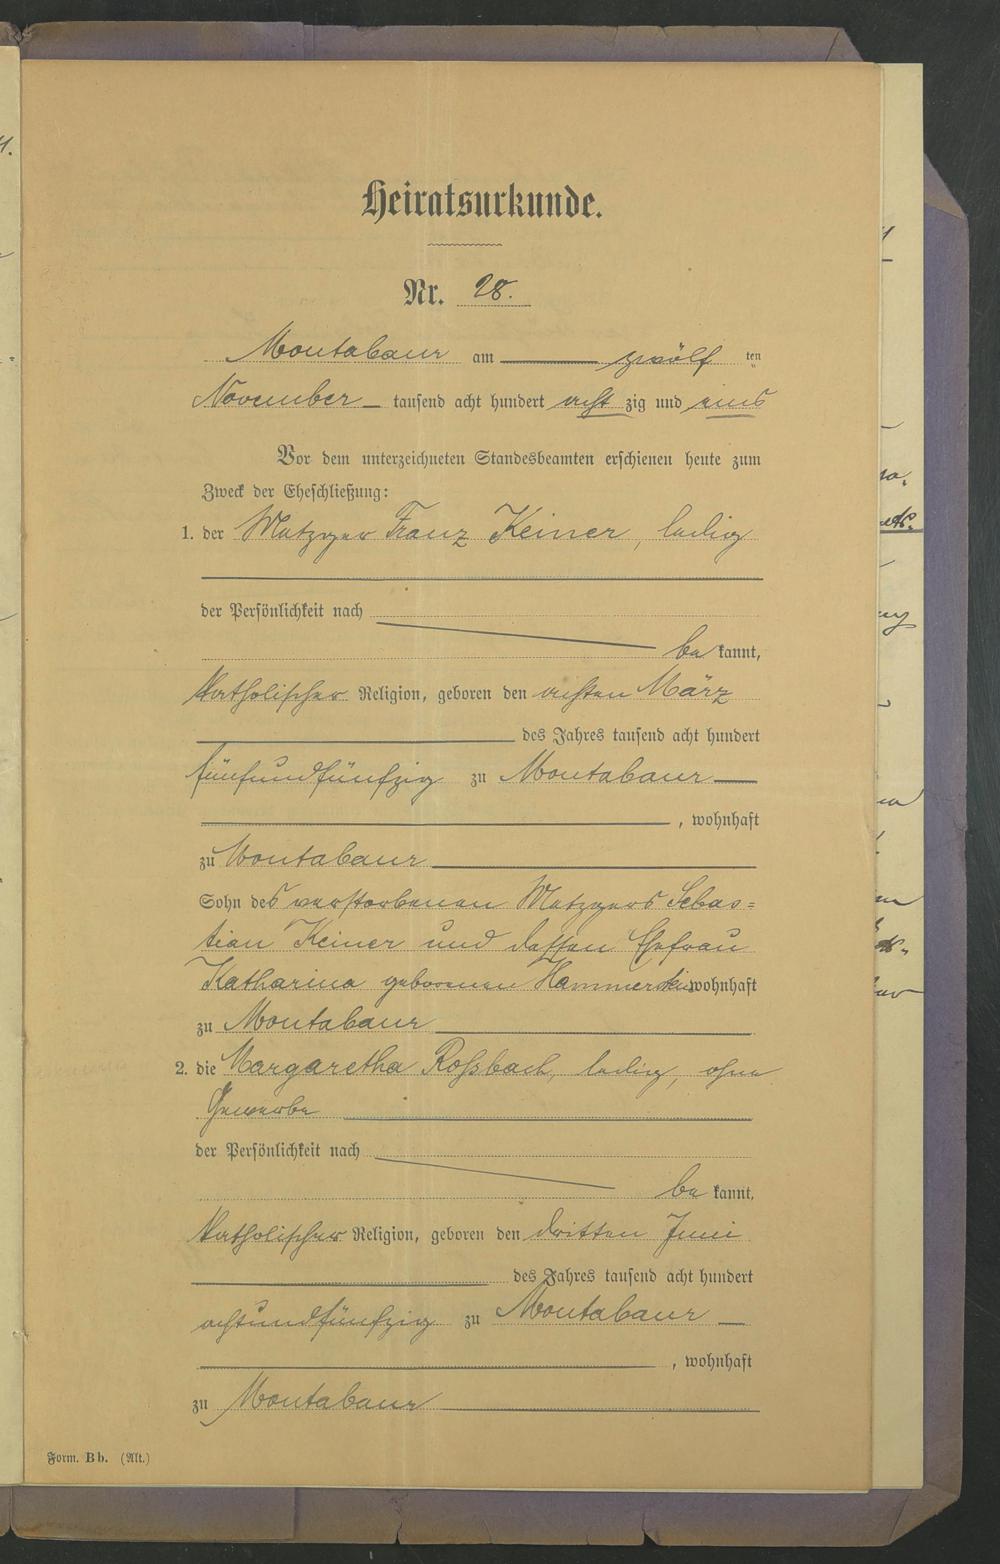 Heiratsurkunde.
Nr. 28.
Montabaur am zwölf ten
November tausend acht hundert acht zig und eins
Vor dem unterzeichneten Standesbeamten erschienen heute zum
Zweck der Eheschließung:
1. der Metzger Franz Keiner, ledig
der Persönlichkeit nach
be kannt,
katholischer Religion, geboren den achten März
des Jahres tausend acht hundert
fünfundfünfzig zu Montabaur
, wohnhaft
zu Montabaur
Sohn des verstorbenen Metzgers Sebas=
tian Keiner und dessen Ehefrau
Katharina geborenen wohnhaft
zu Montabaur
2. die Margaretha Roßbach, ledig, ohne
Gewerbe
der Persönlichkeit nach
be kannt,
katholischer Religion, geboren den dritten Juni
des Jahres tausend acht hundert
achtundfünfzig zu Montabaur
, wohnhaft
zu Montabaur
Form. Bb. (Alt.)